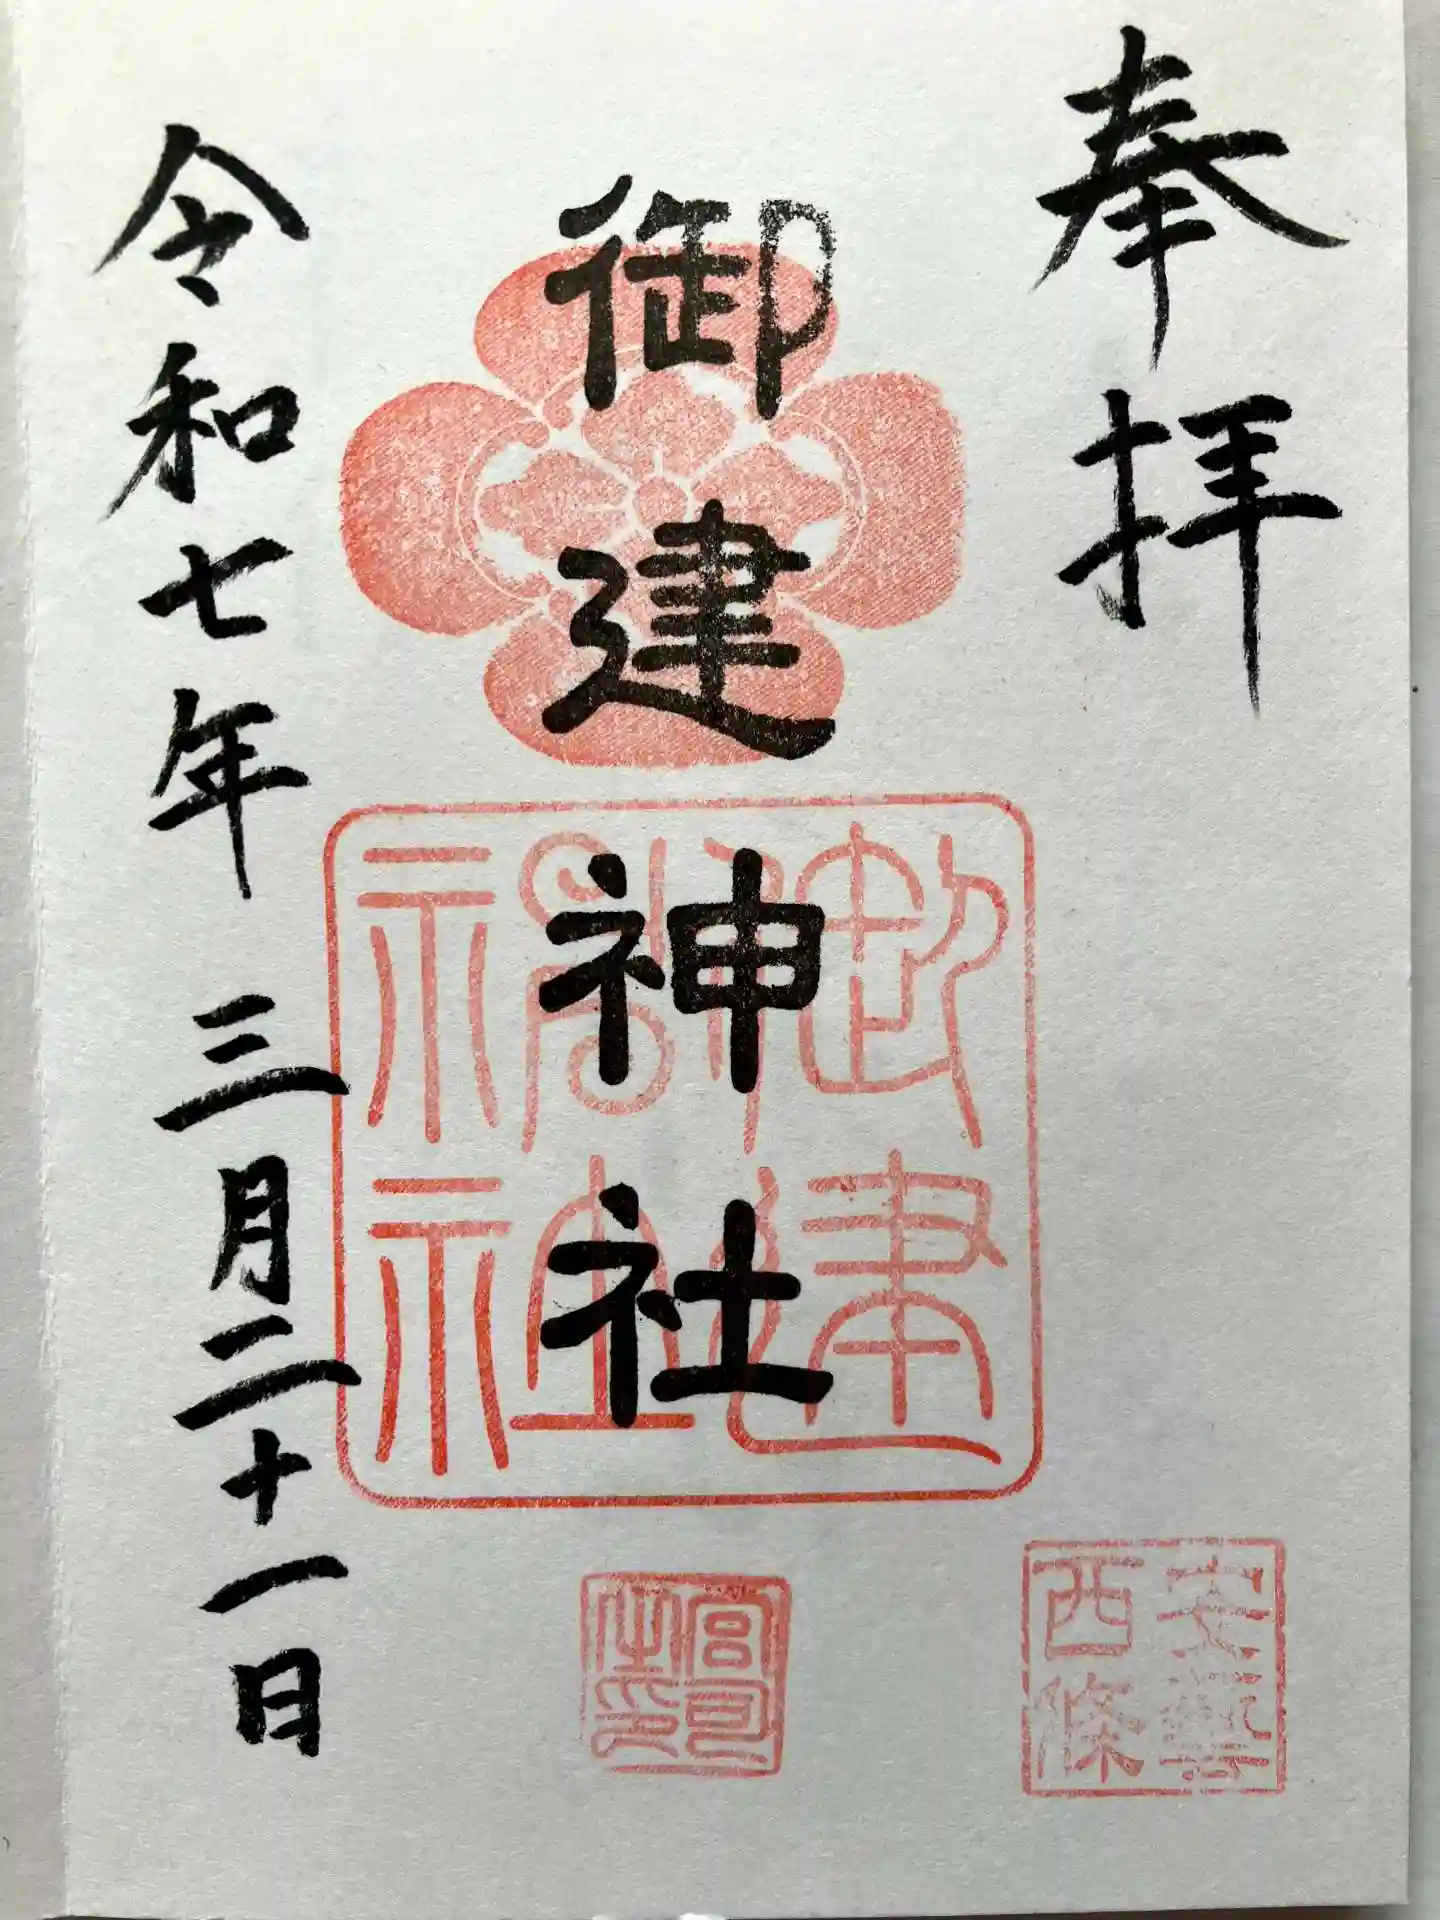 奉拝
御建神社
御建神社
安藝西條
宮司之印
令和七年 三月二十一日